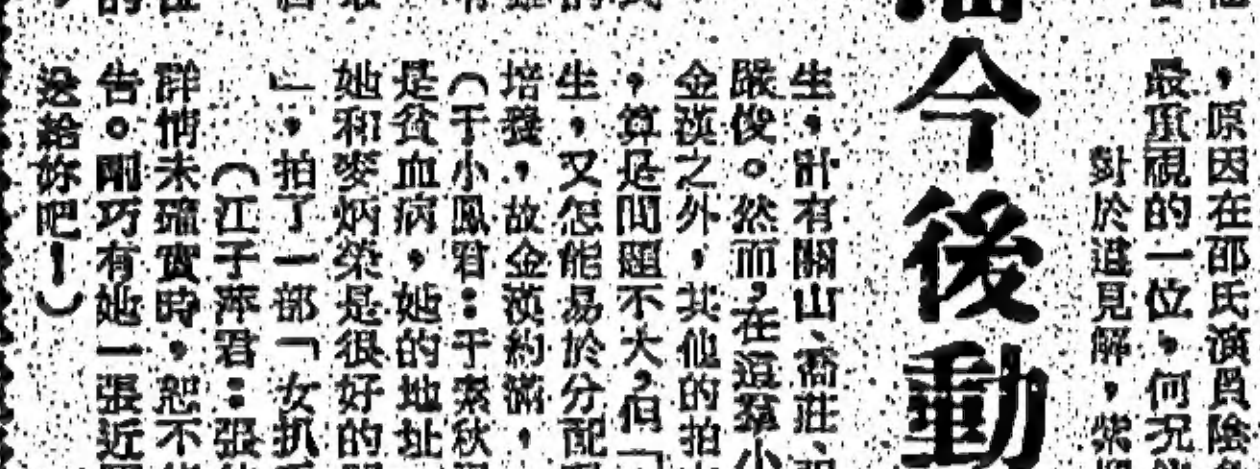 ，原因在邵氏演員陰
最重視的一位，何況
對於這見解，紫
今後動
生，計有關山、喬莊、
嚴俊。然而，在這羣小
金漢之外，其他的拍
，算是問題不大，但「
生，又怎能易於分配
培發，故金漢約滿，
（于小鳳君：于素秋
是貧血病，她的地址
她和麥炳榮是很好的
」，拍了一部「女扒
（江子萍君：張
群情未確實時，恕不
告。剛巧有她一張近
送給妳吧！）